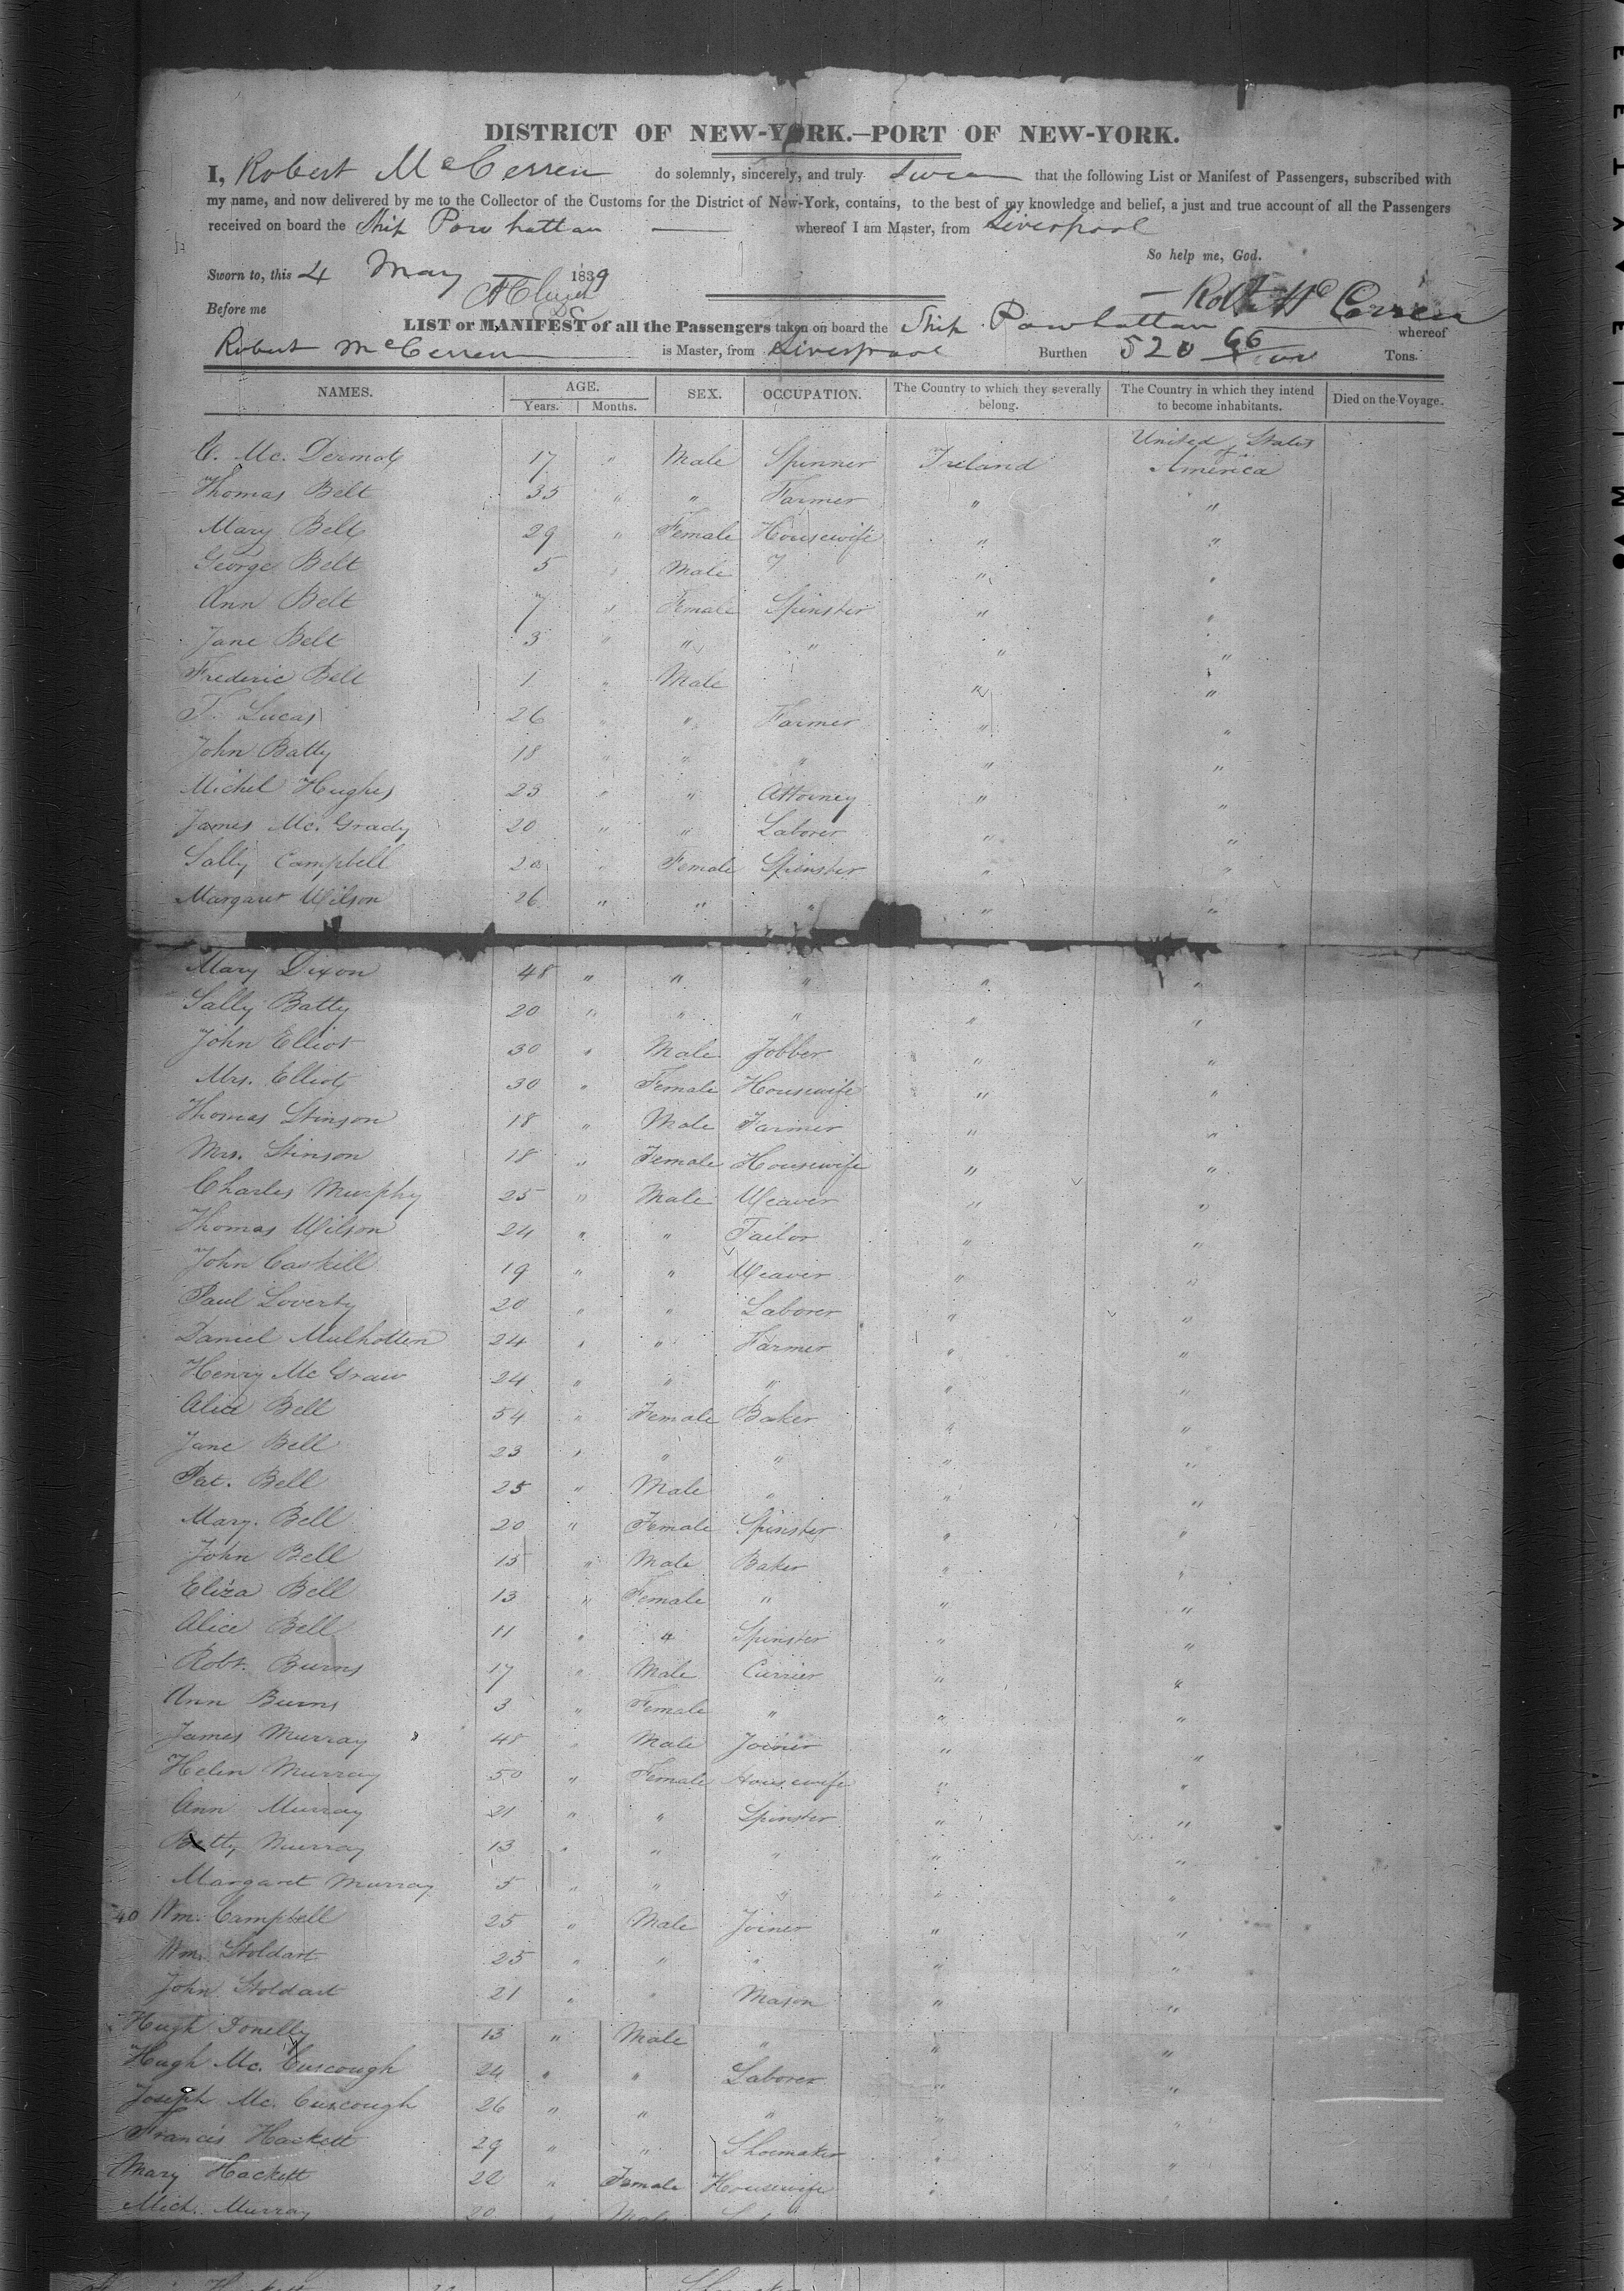 DISTRICT OF NEW-YORK.—PORT OF NEW-YORK.
I, Robert McCerren do solemnly, sincerely, and truly swear that the following List or Manifest of Passengers, subscribed with
my name, and now delivered by me to the Collector of the Customs for the District of New-York, contains, to the best of my knowledge and belief, a just and true account of all the Passengers
received on board the Ship Powhattan whereof I am Master, from Liverpool
So help me, God.
Sworn to, this 4 May 1839
Robt McCerren
Before me
LIST or MANIFEST of all the Passengers taken on board the Ship Powhattan whereof
Robert McCerren is Master, from Liverpool Burthen 520 66 Tons.
NAMES. AGE. Years. Months. SEX. OCCUPATION. The Country to which they severally belong. The Country in which they intend to become inhabitants. Died on the Voyage.
C. Mc. Dermot 17 " Male Spinner Ireland United States of America
Thomas Belt 35 " " Farmer " "
Mary Belt 29 " Female Housewife " "
George Belt 5 " Male " "
Ann Belt 7 " Female Spinster " "
Jane Belt 3 " " " " "
Frederic Belt 1 " Male " "
T. Lucas 26 " " Farmer " "
John Batty 18 " " " " "
Michel Hughes 23 " " Attorney " "
James Mc. Grady 20 " " Laborer " "
Sally Campbell 20 " Female Spinster " "
Margaret Wilson 26 " " " " "
Mary Dixon 48 " " " " "
Sally Batty 20 " " " " "
John Elliot 30 " Male Jobber " "
Mrs. Elliot 30 " Female Housewife " "
Thomas Stinson 18 " Male Farmer " "
Mrs. Stinson 18 " Female Housewife " "
Charles Murphy 25 " Male Weaver " "
Thomas Wilson 24 " " Tailor " "
John Caskill 19 " " Weaver " "
Paul Loverty 20 " " Laborer " "
Daniel Mulhotten 24 " " Farmer " "
Henry Mc Graw 24 " " " " "
Alice Bell 54 " Female Baker " "
Jane Bell 23 " " " " "
Pat. Bell 25 " Male " " "
Mary. Bell 20 " Female Spinster " "
John Bell 15 " Male Baker " "
Eliza Bell 13 " Female " " "
Alice Bell 11 " " Spinster " "
Robt. Burns 17 " Male Currier " "
Ann Burns 3 " Female " " "
James Murray 48 " Male Joiner " "
Helen Murray 50 " Female Housewife " "
Ann Murray 21 " " Spinster " "
Betty Murray 13 " " " " "
Margaret Murray 5 " " " " "
40 Wm. Campbell 25 " Male Joiner " "
Wm. Stoldart 25 " " " " "
John Stoldart 21 " " Mason " "
Hugh Donelly 13 " Male " " "
Hugh Mc. Cuscough 24 " " Laborer " "
Joseph Mc. Cuscough 26 " " " " "
Francis Hackett 29 " " Shoemaker " "
Mary Hackett 22 " Female Housewife " "
Mich. Murray 20 " Male